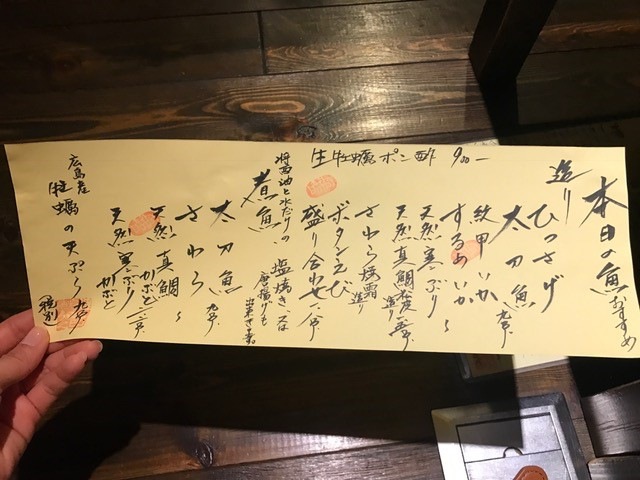 本日の魚おすすめ
造り
ひっさげ
太刀魚
紋甲いか
するめいか
天然寒ぶり
天然真鯛
造り
さわら焼霜
造り
ボタンエビ
盛り合わせ
生牡蠣ポン酢 900-
煮魚
醤油と水だけの
塩焼き、又は
唐揚げも
出来ます。
太刀魚
さわら
天然真鯛
かぶと
天然寒ぶり
かぶと
広島産
牡蠣の天ぷら